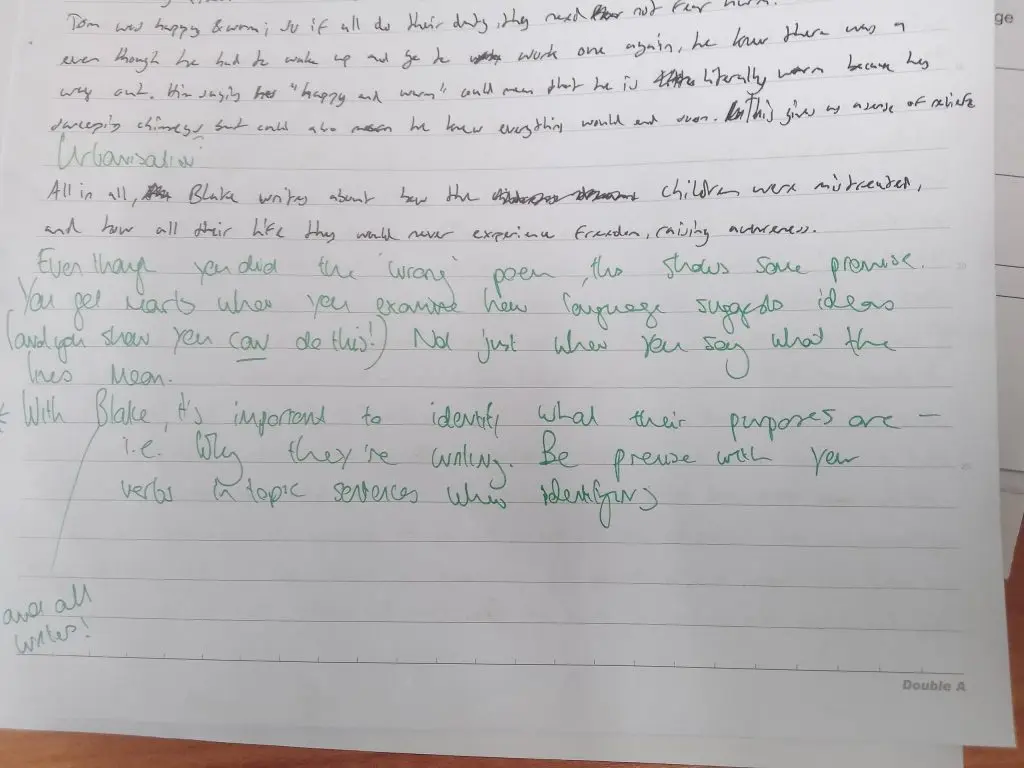 Tom was happy & warm; so if all do their duty, they need not fear harm.
even though he had to wake up and go to work one again, he knew there was a
way out. Him saying "happy and warm" could mean that he is literally warm because he's
sweeping chimneys but could also mean he knew everything would end soon. This gives us a sense of reliefe
Urbanisation
All in all, Blake writes about how the children were mistreated,
and how all their life they would never experience freedom, raising awareness.
Even though you did the 'wrong' poem, this shows some promise.
You get marks when you examine how language suggests ideas
(and you show you can do this!) Not just when you say what the
lines mean.
* With Blake, it's important to identify what their purposes are –
i.e. Why they're writing. Be precise with your
verbs in topic sentences when identifying
and all
writers!
Double A
ge